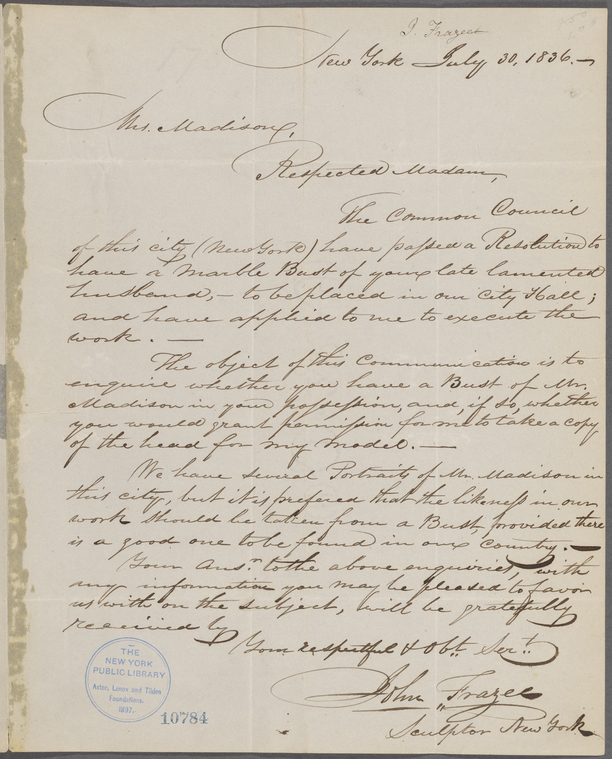 J. Frazee
New York July 30, 1836.—
Mrs. Madison,
Respected Madam,
The Common Council
of this city (New York) have passed a Resolution to
have a Marble Bust of your late lamented
husband,— to be placed in our City Hall;
and have applied to me to execute the
work. —
The object of this Communication is to
enquire whether you have a Bust of Mr.
Madison in your possession, and, if so, whether
you would grant permission for me to take a copy
of the head for my model. —
We have several Portraits of Mr. Madison in
this city, but it is prefered that the likeness in our
work should be taken from a Bust, provided there
is a good one to be found in our country. —
Your Ansr. to the above enquiries, with
any information you may be pleased to favor
us with on the subject, will be gratefully
received by
Your respectful & Obt. Sert.
John Frazee
Sculptor New York
THE
NEW YORK
PUBLIC LIBRARY
Astor, Lenox and Tilden
Foundations.
1897.
10784